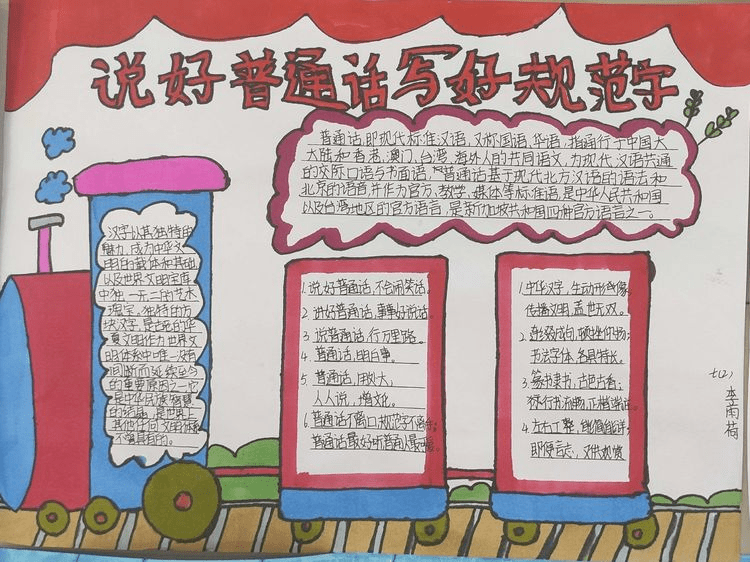 说好普通话写好规范字
普通话,即现代标准汉语,又称国语、华语,指通行于中国大
大陆和香港、澳门、台湾、海外人的共同语文,为现代汉语共通
的交际口语与书面语,普通话基于现代北方汉语的语法和
北京的语音并作为官方、教学、媒体等标准语,是中华人民共和国
以及台湾地区的官方语音,是新加坡共和国四种官方语言之一。
汉字以其独特的
魅力,成为中华文
明的载体和基础
以及世界文明宝库
中独一无二的艺术
瑰宝,独特的方
块汉字,是古老的华
夏文明作为世界文
明体系中唯一没有
间断而延续至今
的重要原因之一它
是中华民族智慧
的结晶,是世界上
其他任何文明体系
不曾具有的。
1.说好普通话,不会闹笑话。
2.讲好普通话,事事好说话。
3.说普通话,行万里路。
4.普通话,明白事。
5.普通话,用处大,
人人说,增文化。
6.普通话不离口规范字不离手;
普通话最好听普通人最
1.中华汉字,生动形象,
传播文明,盖世无双。
2.形
书法字体,各具特长。
3.篆书隶书,古色古香;
行书流畅,正楷端庄。
4.
即便言志,又供观赏
七(2)
李雨荷